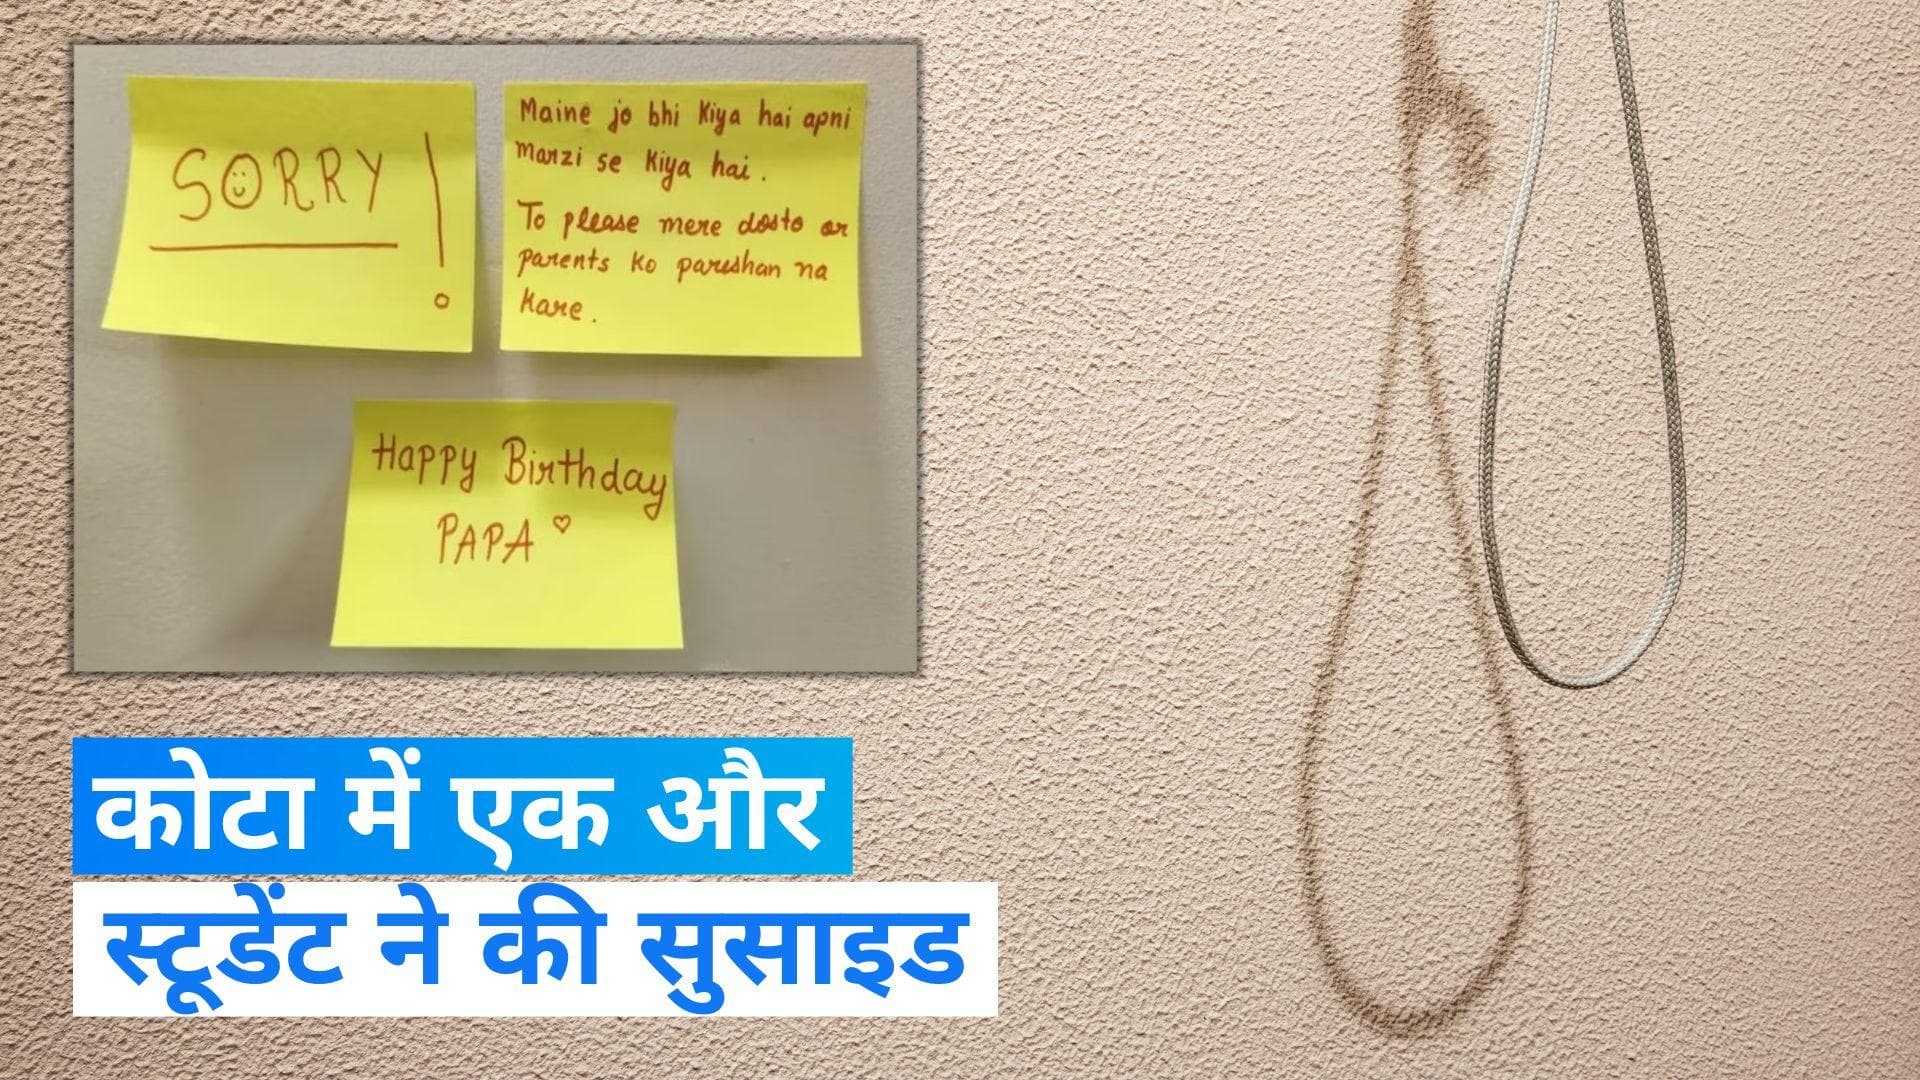 SORRY!
Maine jo bhi kiya hai apni
marzi se kiya hai.
To please mere dosto or
parents ko pareshan na
kare.
Happy Birthday
PAPA ♡
कोटा में एक और
स्टूडेंट ने की सुसाइड